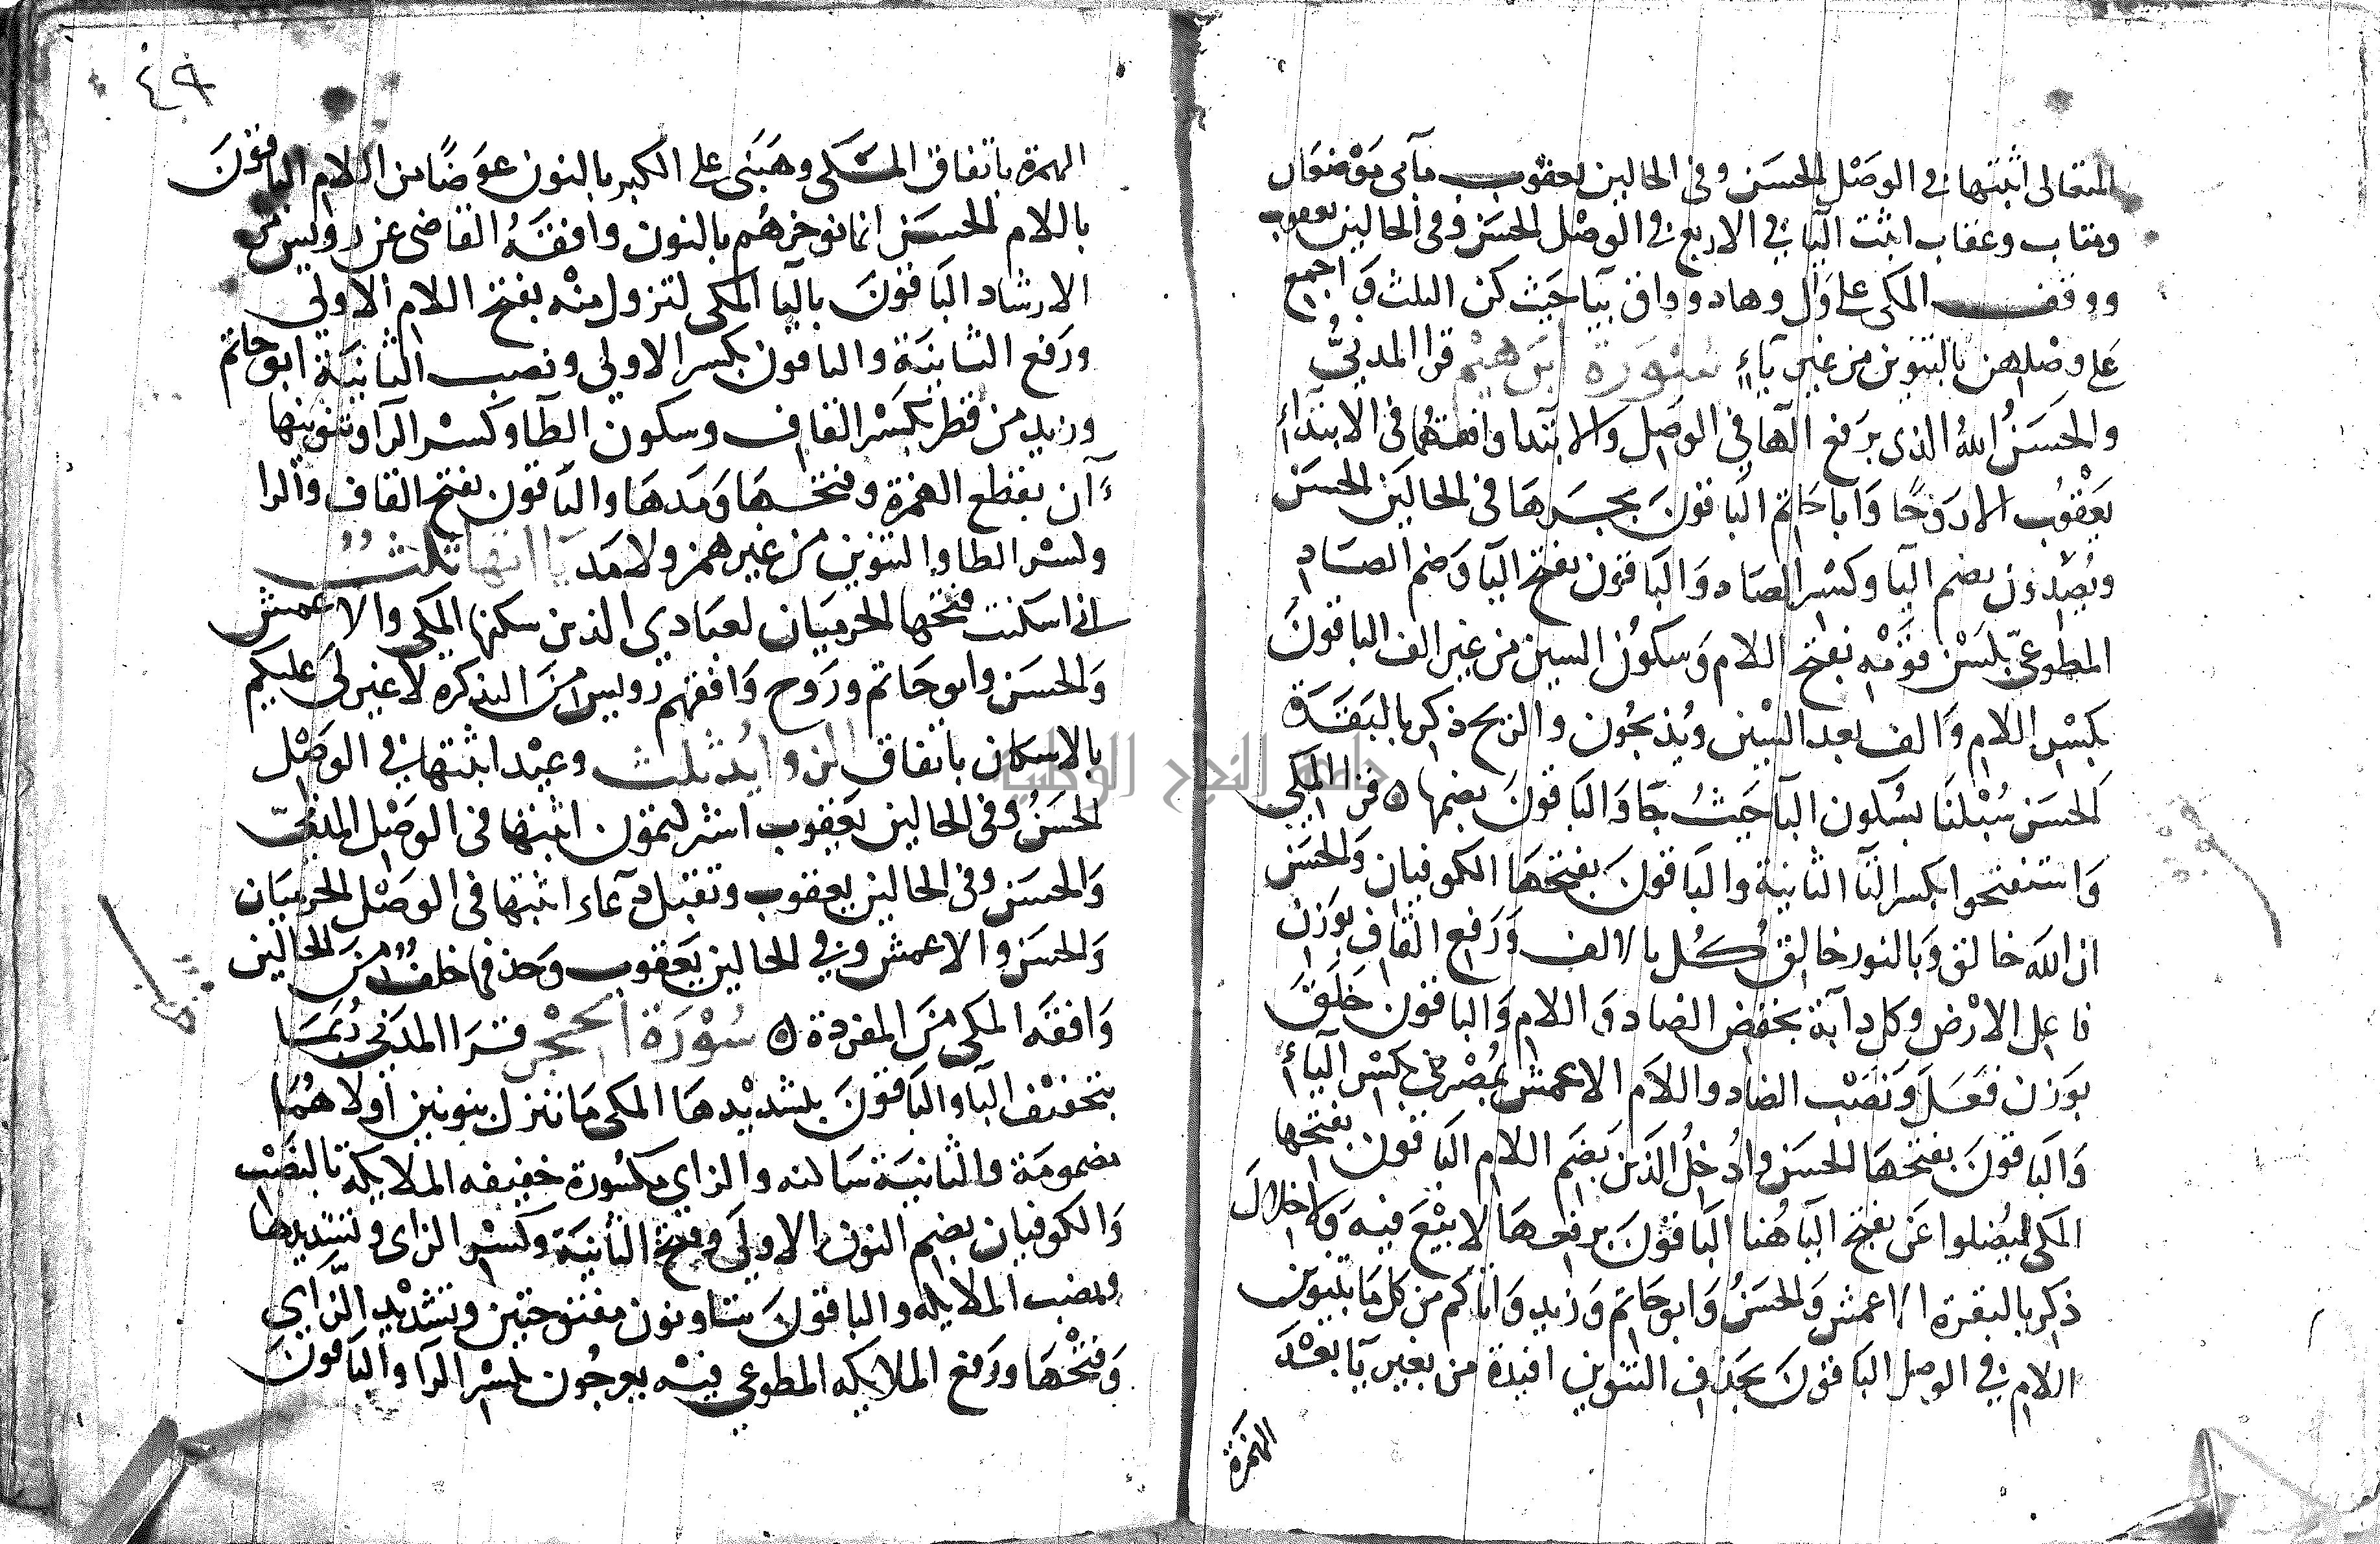 المتعالى اثبتها في الوصل الحسن وفى الحالين يعقوب مآبى موضعان
ومتاب وعقاب اثبت اليا في الاربع في الوصل الحسن وفى الحالين يعقوب
ووقف المكى على وال وهاد وواق بيا حيث كن الثلث واجمع
على وصلهن بالتنوين من غير ياءٍ سُوْرَة ابرهيم قرا المدنيُّ
والحسَنُ اللهُ الذى برفع الهآ في الوصل والابتدا وافقهُما فى الابتداءِ
يَعْقوُب الا رَوْحًا وَابا حَاتم البَاقونَ بجرهَا فى الحالَين الحسَنْ
ويُصِدّون بضم اليا وكسْر الصَاد وَالبَاقون بفتح اليَا وَضم الصَاد
المطوعىّ بلَسْن قَوْمِه بفتح اللام وَسكوُن السين من غير الف الباقونَ
بكسْر اللام وَالف بعد السْين ويُذبحُون والريح ذكر بالبَقَرة
الحسَن سُبْلنَا بسْكون البآ حَيثُ جَا وَالبَاقونَ بضمها ه قرا المكى
وَاستفتحوا بكسر التآ الثانية والبَاقونَ بفتحهَا الكوفيان وَالحسَن
ان اللهَ خالق وَبالنور خالقُ كُل بالالف وَرَفع القاف بوَزن
فاعِل الارْض وكل دآبة بخفض الضاد وَاللام وَالباقون خَلَقَ
بوَزن فَعَلَ وَنَصْب الضاد واللاَم الاعمش بمُصْرخىّ بكسْر اليآءِ
وَالبَاقونَ بفتحهَا الحسَن واُدْخلُ الذَين بضَم اللام البَاقون بفتحها
المكى ليُضلوا عَن بفتح اليَا هُنا البَاقونَ برفعهَا لا بيْعَ فيه وَلا خلالَ
ذكر بالبقرة الاعمش وَالحسَنُ وَابو حَاتم وَزيد وَاتاكم من كل مَا بتنوين
اللام في الوصل البَاقونَ بحَذف التنوين افيدة من بغير يآ بعْدَ
الهَمْزَة
٤٩
الهمزة باتفاق المكى وهَبَنى على الكبر بالنون عوَضًا من اللام البَاقونَ
باللام الحسَن انما نوخرهُم بالنون وافقهُ القاضى عن رويس من
الارشاد البَاقونَ باليآ المكى لتزول منْه بفتح اللام الاولى
ورَفع الثانيَة والباقون بكسر الاولى ونصب الثانيَة ابو حَاتم
وزيد من قطرٍ بكَسْر القاف وسكون الطآ وكسْر الرآ وتنوينها
ءَآن بقطع الهمزة وفتحهَا وَمَدهَا والبَاقون بفتح القاف والرا
وكسْر الطا والتنوين من غير همز ولا مَد يَا اتها ثلثُ
انى اسكنت فتحها الحرميَان لعبَادى الذين سكنها المكى والاعمش
وَالحسَن وابو حَاتم ورَوح وَافقهم رويس منَ التذكره لا غير لىَ عليكم
بالاسكان باتفاق الزوايُد ثلث وعيْد اثبتها في الوصْل
الحسَنُ وفى الحالين يَعقوب اشركتمون اثبتها فى الوصْل المدنىّ
وَالحسَن وفى الحالين يعقوب وتقبل دعَاء اثبتها فى الوصْل الحرميَان
وَالحسَن والاعمش وفي الحالين يَعقوب وَحذفها خلفُ منَ الحالين
وَافقَه المكى منَ المفردة ه سُوْرَة الحجْر قرَا المدَنى رُبَمَا
بتخفيْف البآ والبَاقونَ بتشديْدهَا المكى مَا ننزل بنونين اُولاهُمَا
مضمومَة والثانيَة سَاكنه والزاى مكسُورة خفيفه الملايكة بالنصْب
وَالكوفيان بضم النون الاولَى وَفتح الثانيَة وكَسْر الزاى وتشديدها
ونصب الملايكه والباقونَ بتاونون مفتوحتين وتشديْد الزاي
وَفتْحهَا ورَفع الملايكه المطوعى فيْه يعرجُون بكسْر الرآ والبَاقونَ
جامعة النجاح الوطنية